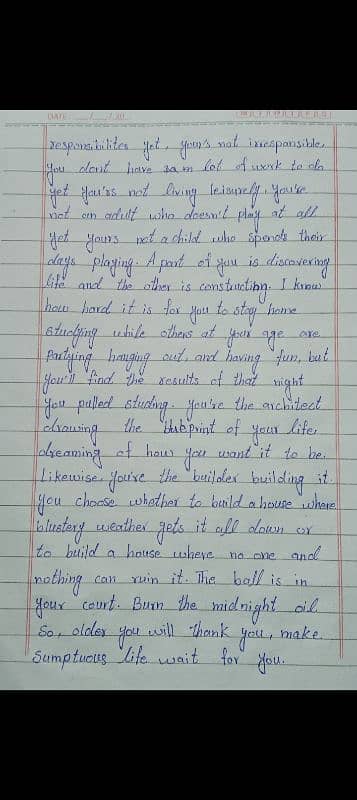 DATE
responsibilites yet, your's not irresponsible.
You don't have lot of work to do
yet your's not living leisurely. You're
not an adult who doesn't play at all
yet yours not a child who spends their
days playing. A part of you is discovering
life and the other is constructing. I know
how hard it is for you to stay home
studying while others at your age are
partying hanging out, and having fun, but
you'll find the results of that night
you pulled studing. you're the architect
drawing the blueprint of your life,
dreaming of how you want it to be.
Likewise, you're the builder building it.
You choose whether to build a house where
blustery weather gets it all down or
to build a house where no one and
nothing can ruin it. The ball is in
your court. Burn the midnight oil
So, older you will thank you, make
Sumptuous life wait for you.